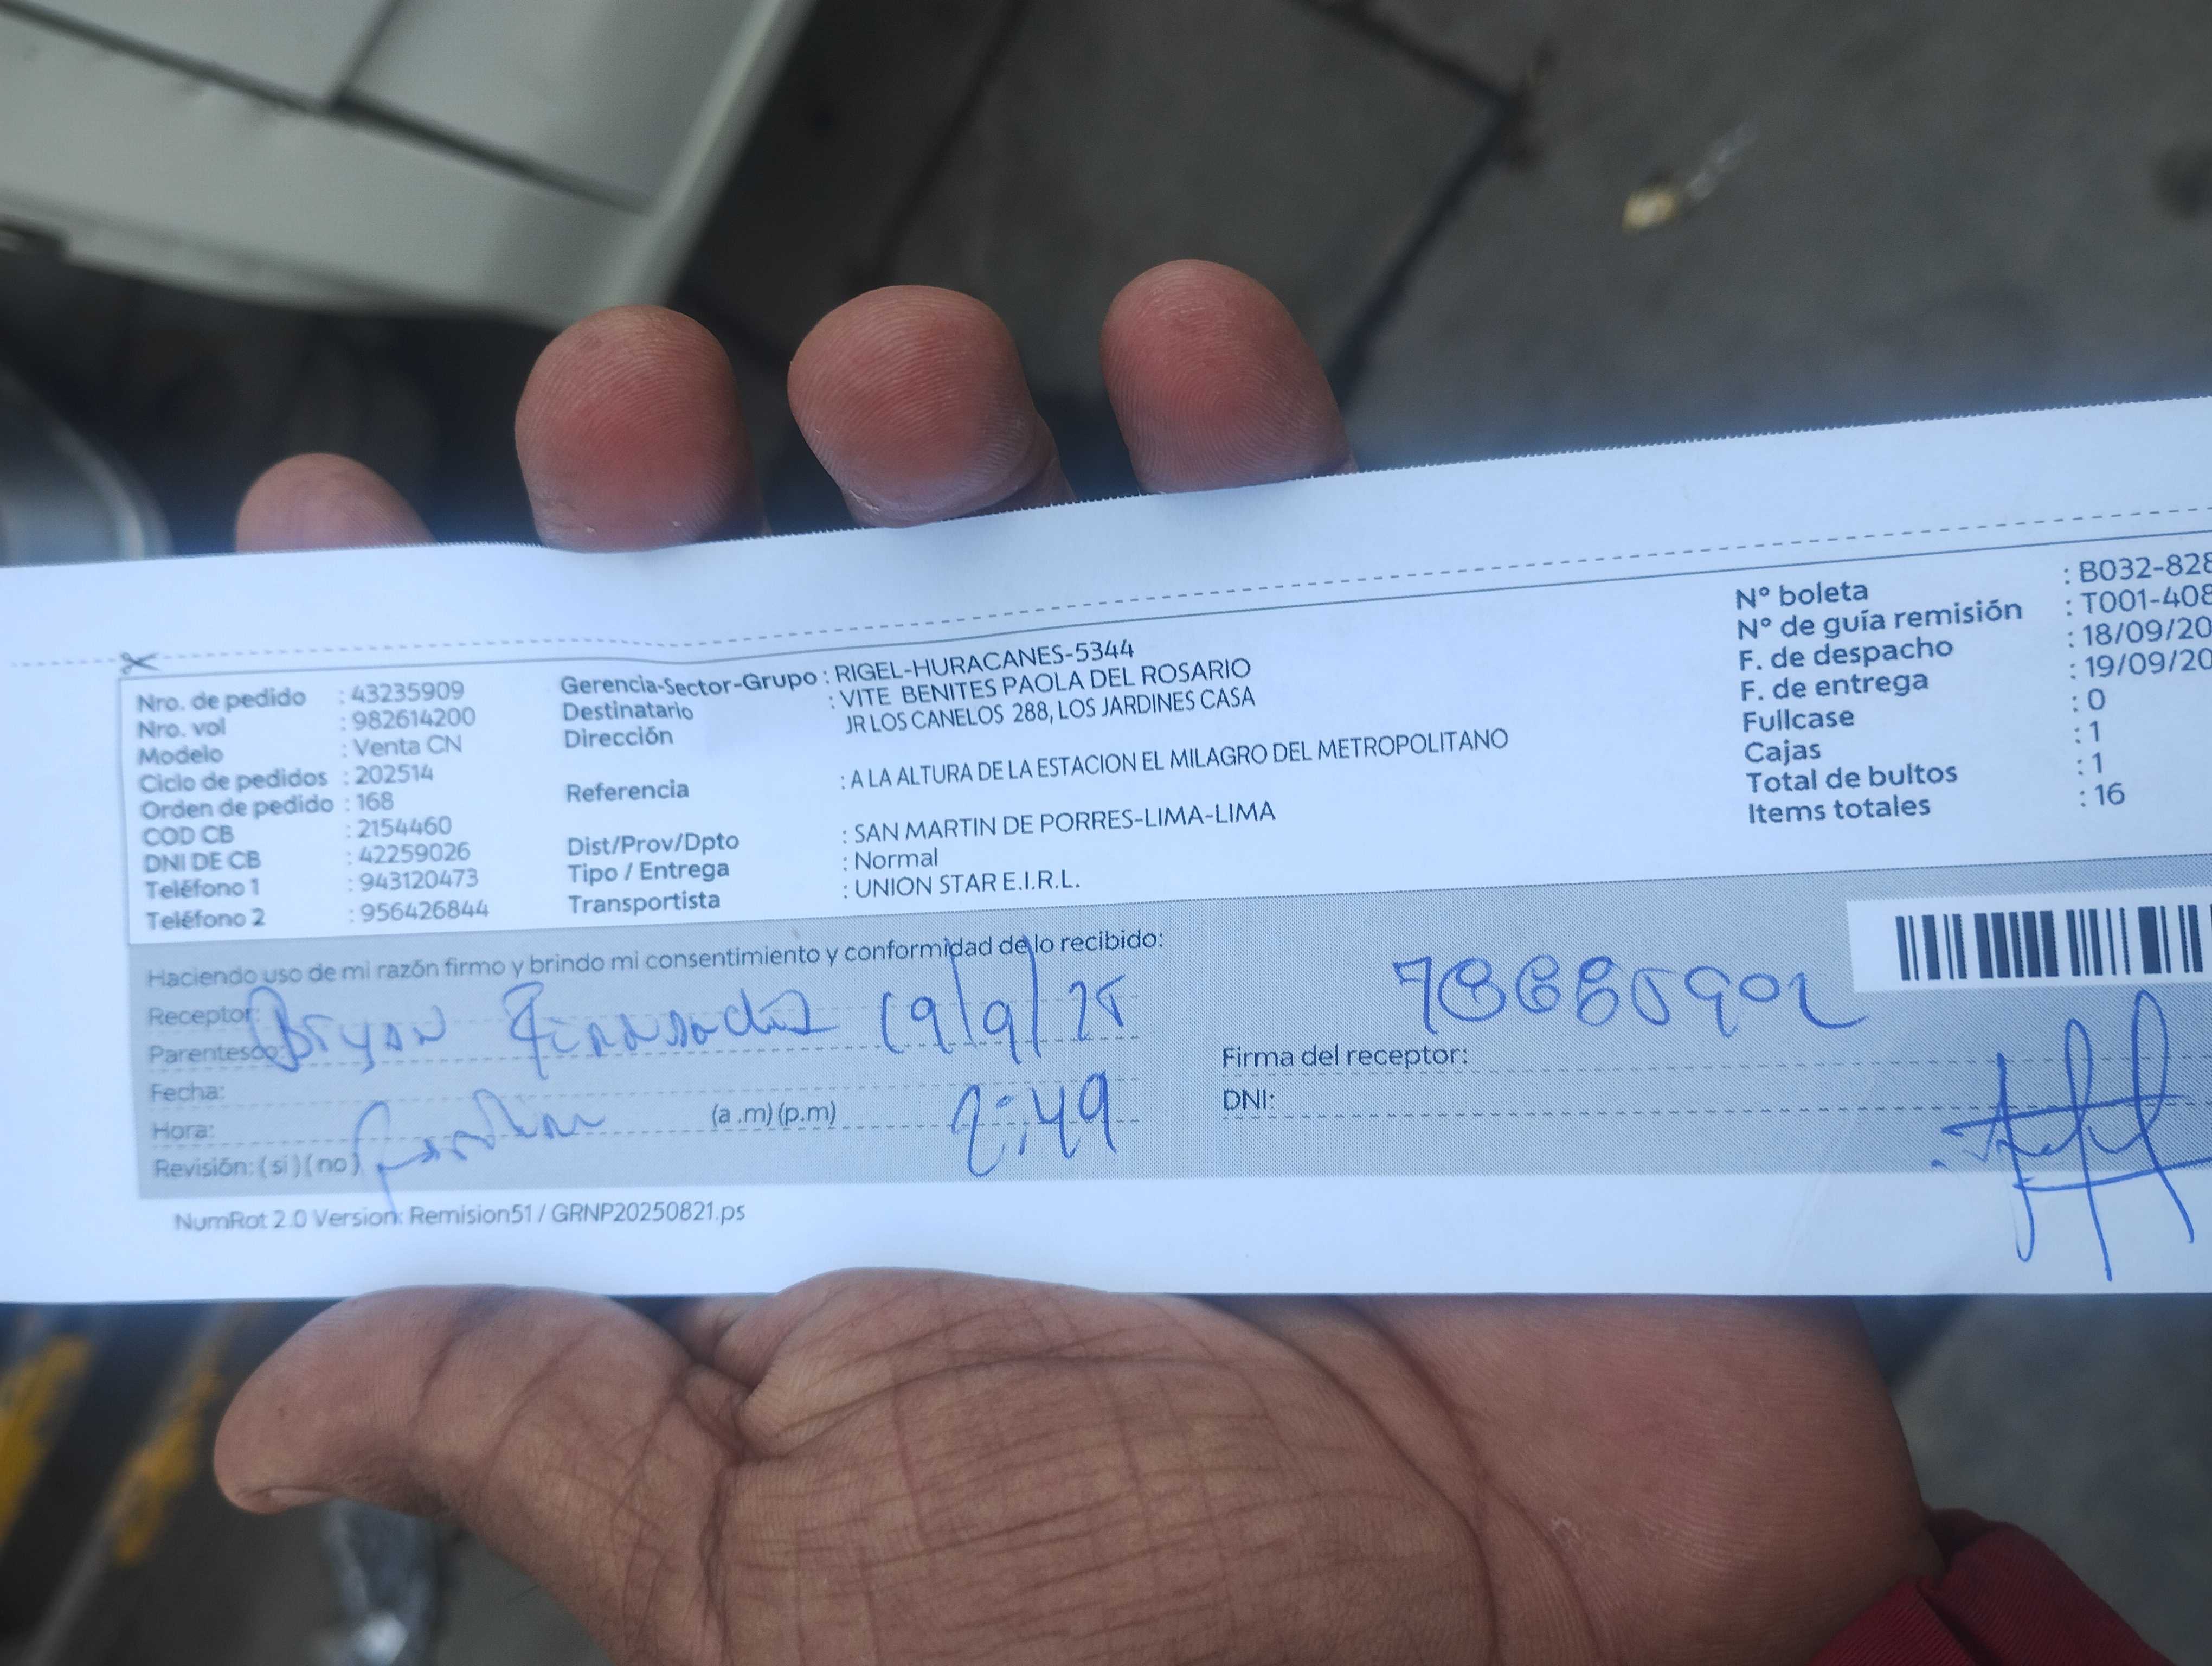 Nro. de pedido : 43235909
Nro. vol : 982614200
Modelo : Venta CN
Ciclo de pedidos : 202514
Orden de pedido : 168
COD CB : 2154460
DNI DE CB : 42259026
Teléfono 1 : 943120473
Teléfono 2 : 956426844
Gerencia-Sector-Grupo : RIGEL-HURACANES-5344
Destinatario : VITE BENITES PAOLA DEL ROSARIO
Dirección JR LOS CANELOS 288, LOS JARDINES CASA
Referencia : A LA ALTURA DE LA ESTACION EL MILAGRO DEL METROPOLITANO
Dist/Prov/Dpto : SAN MARTIN DE PORRES-LIMA-LIMA
Tipo / Entrega : Normal
Transportista : UNION STAR E.I.R.L.
N° boleta : B032-828
N° de guía remisión : T001-408
F. de despacho : 18/09/20
F. de entrega : 19/09/20
Fullcase : 0
Cajas : 1
Total de bultos : 1
Items totales : 16
Haciendo uso de mi razón firmo y brindo mi consentimiento y conformidad de lo recibido:
Receptor: Bryan 19/9/25
Parentesco:
Fecha:
Hora: (a .m) (p.m) 2:49
Revisión: ( si ) ( no )
Firma del receptor:
DNI:
NumRot 2.0 Version: Remision51 / GRNP20250821.ps